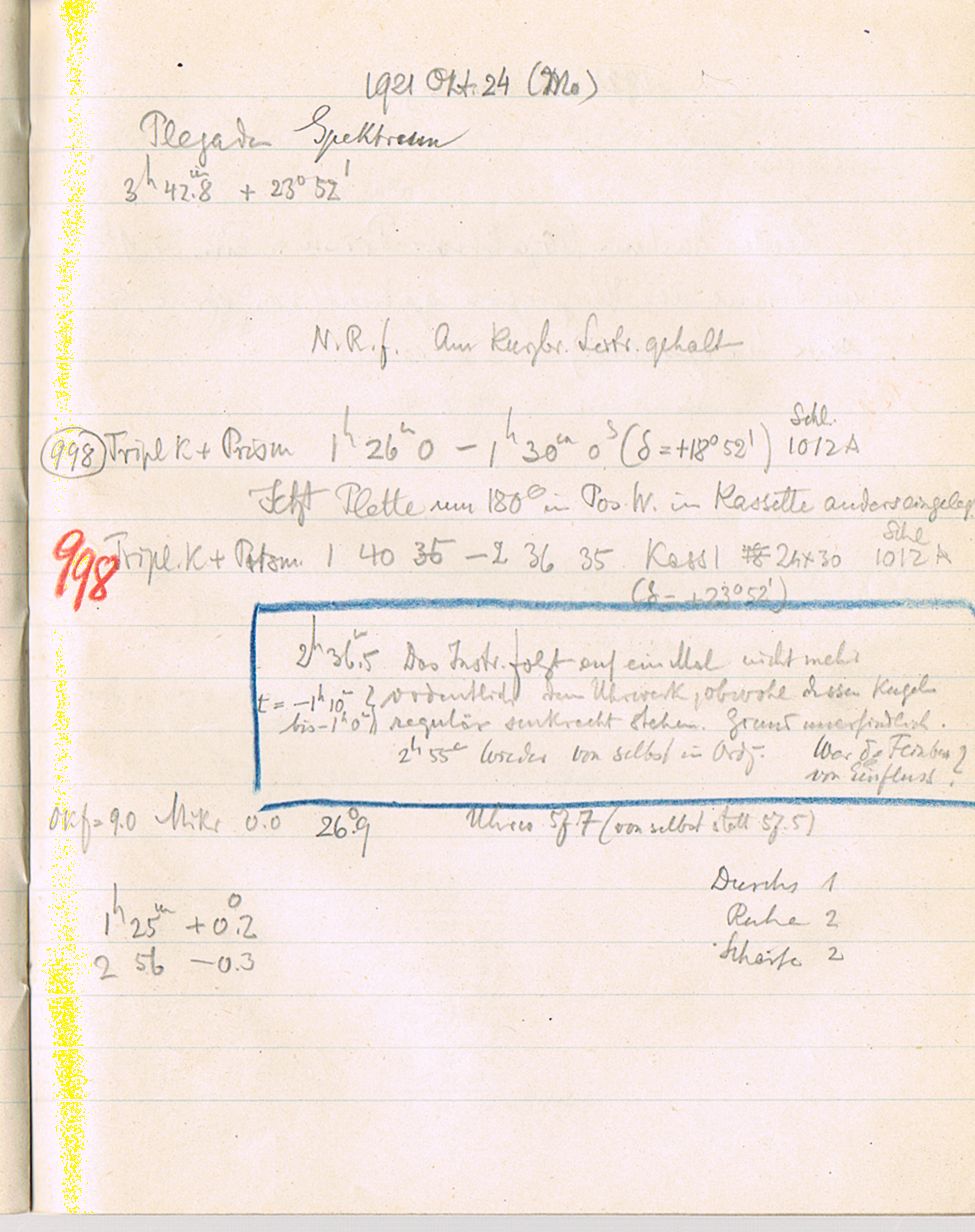 1921 Okt. 24 (Mo)
Plejaden Spektrum
3ʰ 42.ᵐ8 + 23° 52'
N. R. f. Am
998 Tripl K + Prism 1ʰ 26ᵐ 0 – 1ʰ 30ᵐ 0ˢ (δ = +18° 52') Schl. 1012 A
Jetzt Platte um 180° in Pos. W. in Kassette anders eingeleg
998 Tripl. K + Prism. 1 40 35 – 2 36 35 Kass 1 24×30 Schl 1012 A
(δ = +23° 52')
2ʰ 36.ᵐ5 Das Instr. folgt auf ein Mal nicht mehr
t = –1ʰ 10ᵐ ordentlich dem Uhrwerk, obwohl dessen Kugeln
bis –1ʰ 0ᵐ regulär senkrecht stehen. Grund unerfindlich.
2ʰ 55ᵐ wieder von selbst in Ordg. War die Feinbew
von Einfluss?
Okf = 9.0 Mikr 0.0 26.°9 Uhrw 57.7 (von selbst statt 57.5)
Durchs 1
1ʰ 25ᵐ + 0.°2 Ruhe 2
2 56 – 0.3 Schärfe 2